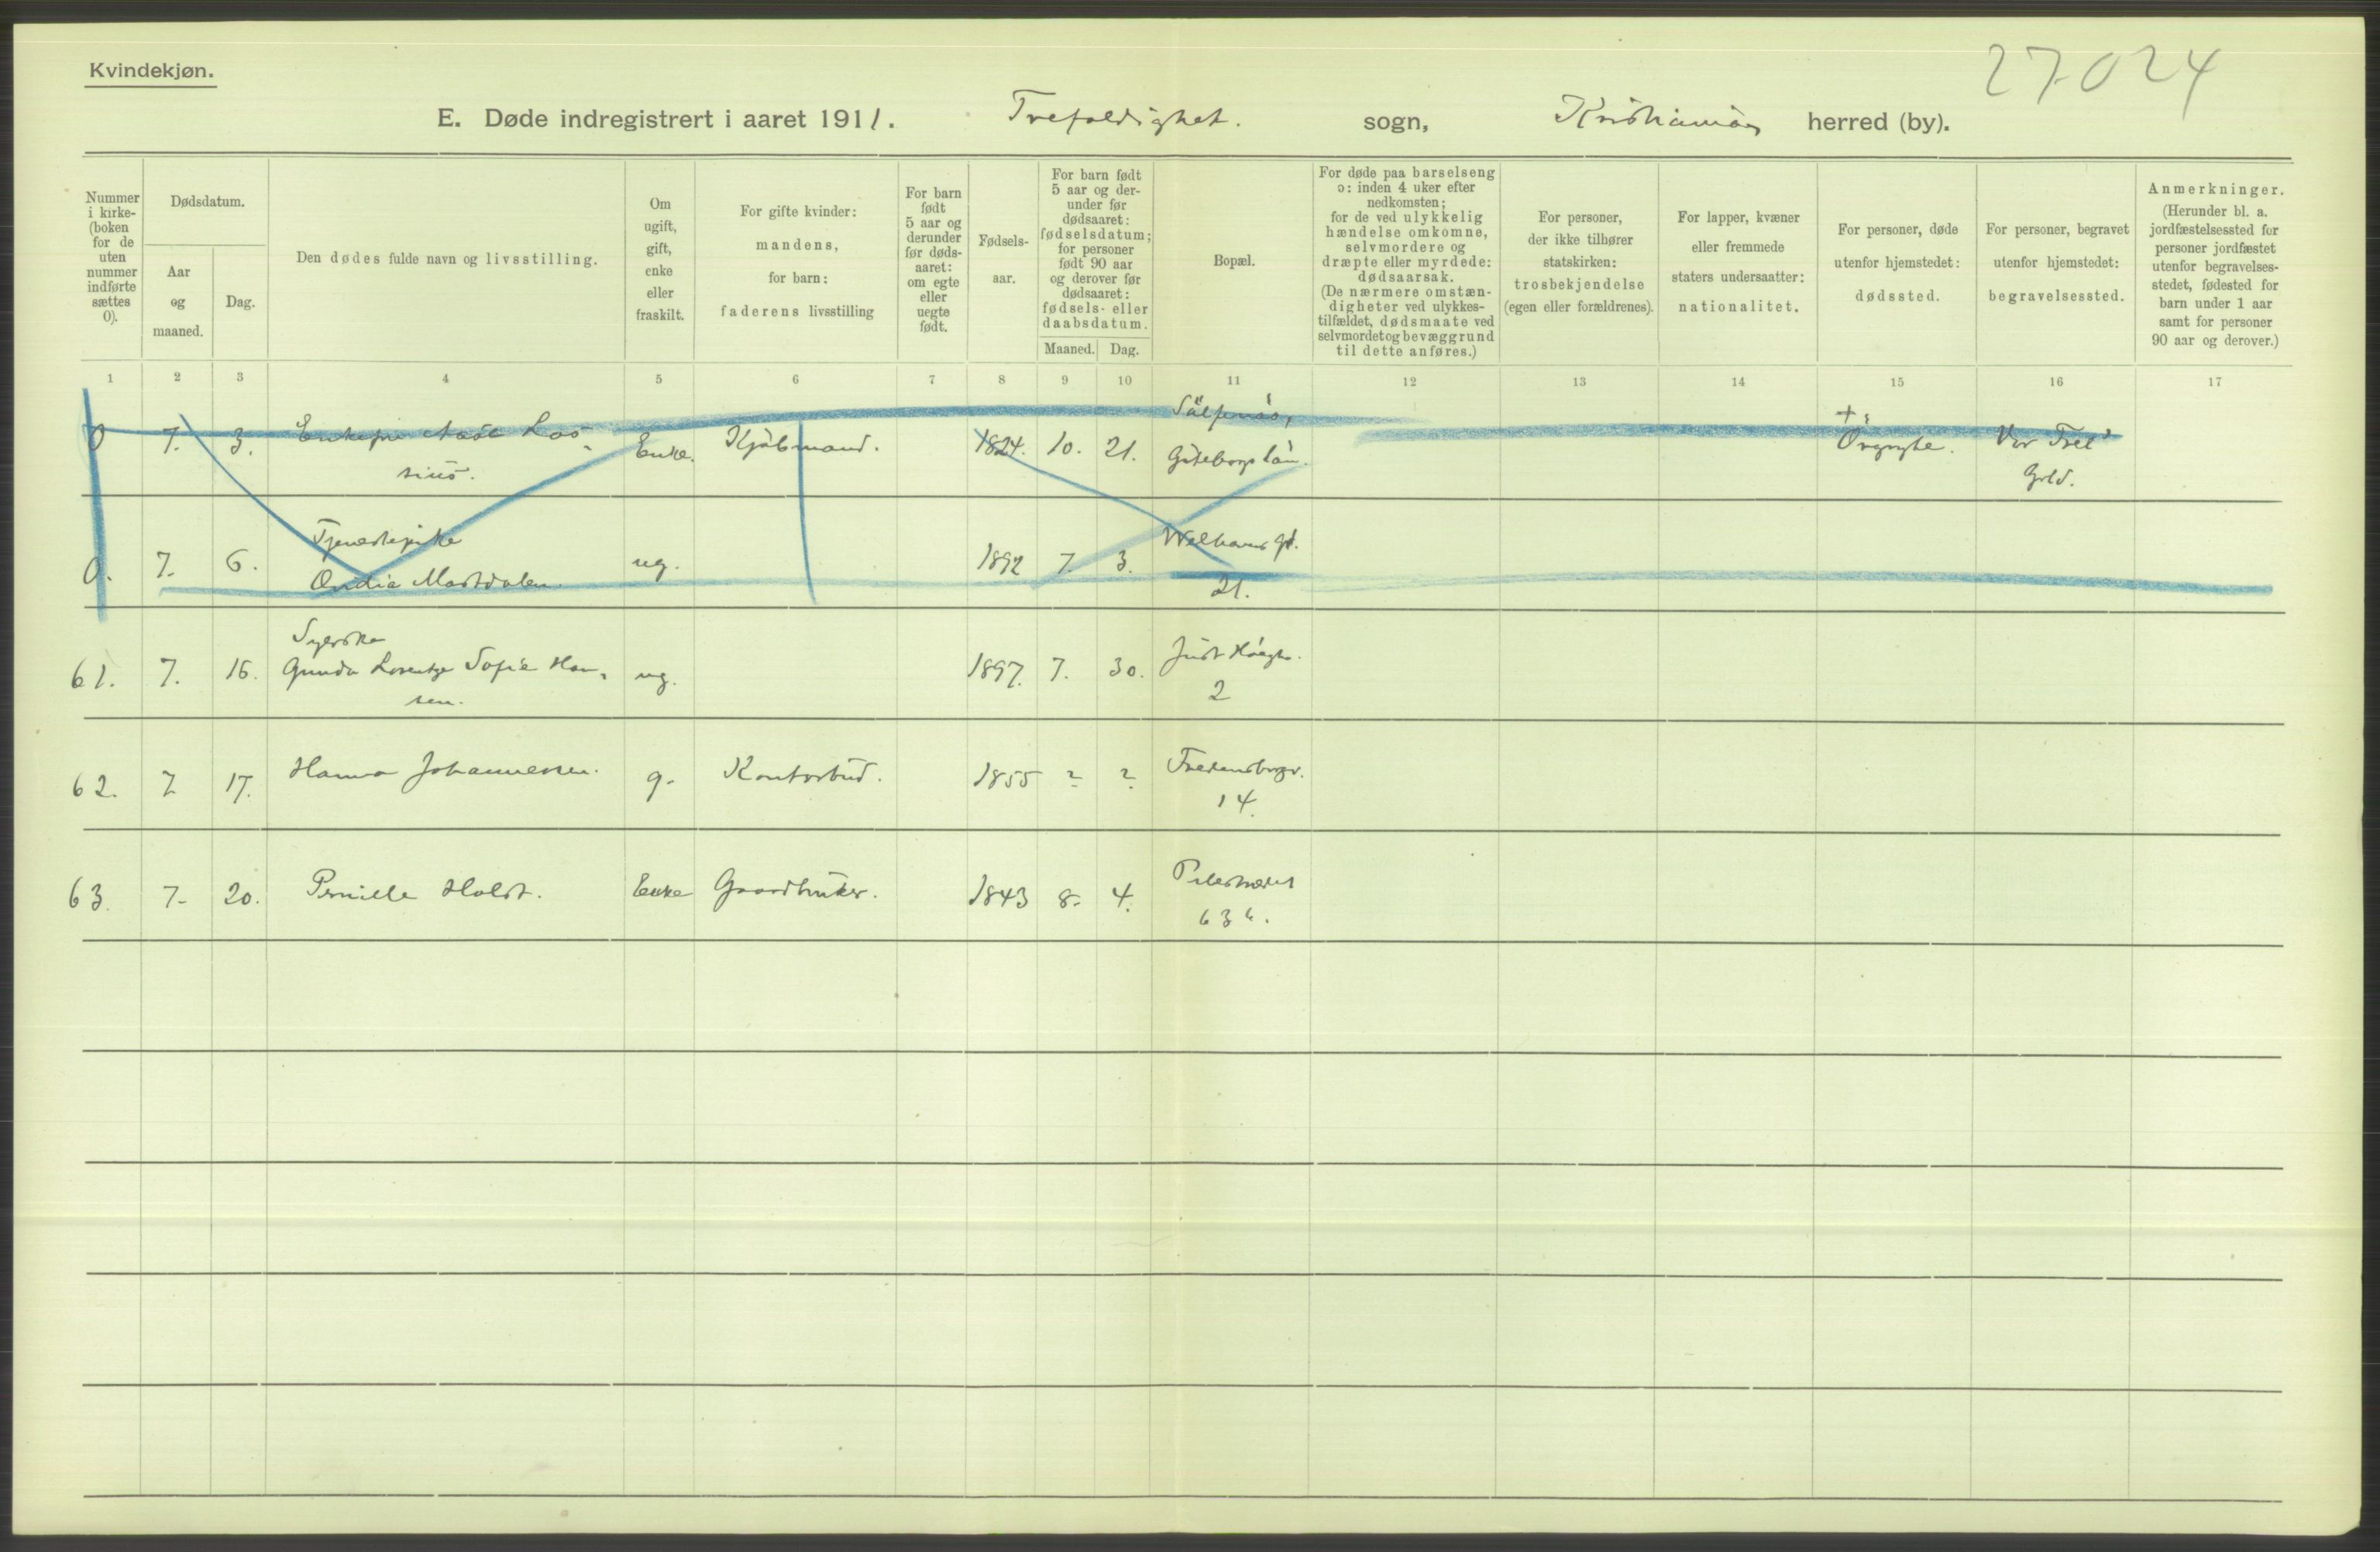 Kvindekjøn.
27024
E. Døde indregistrert i aaret 1911. Trefoldighet. sogn, Kristiania herred (by).
Nummer i kirke- (boken for de uten nummer indførte sættes 0).
Dødsdatum.
Aar og maaned.
Dag.
Den dødes fulde navn og livsstilling.
Om ugift, gift, enke eller fraskilt.
For gifte kvinder: mandens, for barn: faderens livsstilling
For barn født 5 aar og derunder før døds- aaret: om egte eller uegte født.
Fødsels- aar.
For barn født 5 aar og der- under før dødsaaret: fødselsdatum; for personer født 90 aar og derover før dødsaaret: fødsels- eller daabsdatum.
Maaned. Dag.
Bopæl.
For døde paa barselseng ɔ: inden 4 uker efter nedkomsten; for de ved ulykkelig hændelse omkomne, selvmordere og dræpte eller myrdede: dødsaarsak. (De nærmere omstæn- digheter ved ulykkes- tilfældet, dødsmaate ved selvmordet og bevæggrund til dette anføres.)
For personer, der ikke tilhører statskirken: trosbekjendelse (egen eller forældrenes).
For lapper, kvæner eller fremmede staters undersaatter: nationalitet.
For personer, døde utenfor hjemstedet: dødssted.
For personer, begravet utenfor hjemstedet: begravelsessted.
Anmerkninger. (Herunder bl. a. jordfæstelsessted for personer jordfæstet utenfor begravelses- stedet, fødested for barn under 1 aar samt for personer 90 aar og derover.)
1 2 3 4 5 6 7 8 9 10 11 12 13 14 15 16 17
0 7. 3. Enkefru Enke. Kjøbmand. 1824. 10. 21. Göteborgs län. + Örgryte. Vor Frel's Grld.
0. 7. 6. Tjenestepike
ug. 1892 7. 3. Welhavens gt.
21.
61. 7. 15. Syerske
Gunda Lorentze Sofie Han-
sen. ug. 1897. 7. 30. Just Høeghs.
2
62. 7 17. Hanna Johannesen. g. Kontorbud. 1855 ? ? Fredensborgv.
14.
63. 7. 20. Pernille Holst. Enke Gaardbruker. 1843 8. 4. Pilestrædet
63